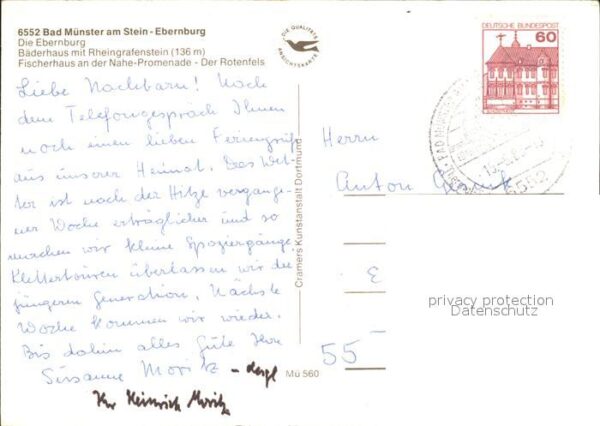 6552 Bad Münster am Stein - Ebernburg
Die Ebernburg
Bäderhaus mit Rheingrafenstein (136 m)
Fischerhaus an der Nahe-Promenade - Der Rotenfels
DIE QUALITÄTS ANSICHTSKARTE
DEUTSCHE BUNDESPOST
60
Liebe Nachbarn! Nach
dem Telefongespräch Ihnen
noch einen lieben Feriengruß
aus unserer Heimat. Das Wet-
ter ist nach der Hitze vergange-
ner Woche erträglicher und so
machen wir kleine Spaziergänge,
Klettertouren überlassen wir der
jüngeren Generation. Nächste
Woche kommen wir wieder.
Bis dahin alles Gute Ihre
Susanne Moritz
Ihr Heinrich Moritz
Cramers Kunstanstalt Dortmund
Mü 560
Herrn
Anton
E
55
6552
privacy protection
Datenschutz